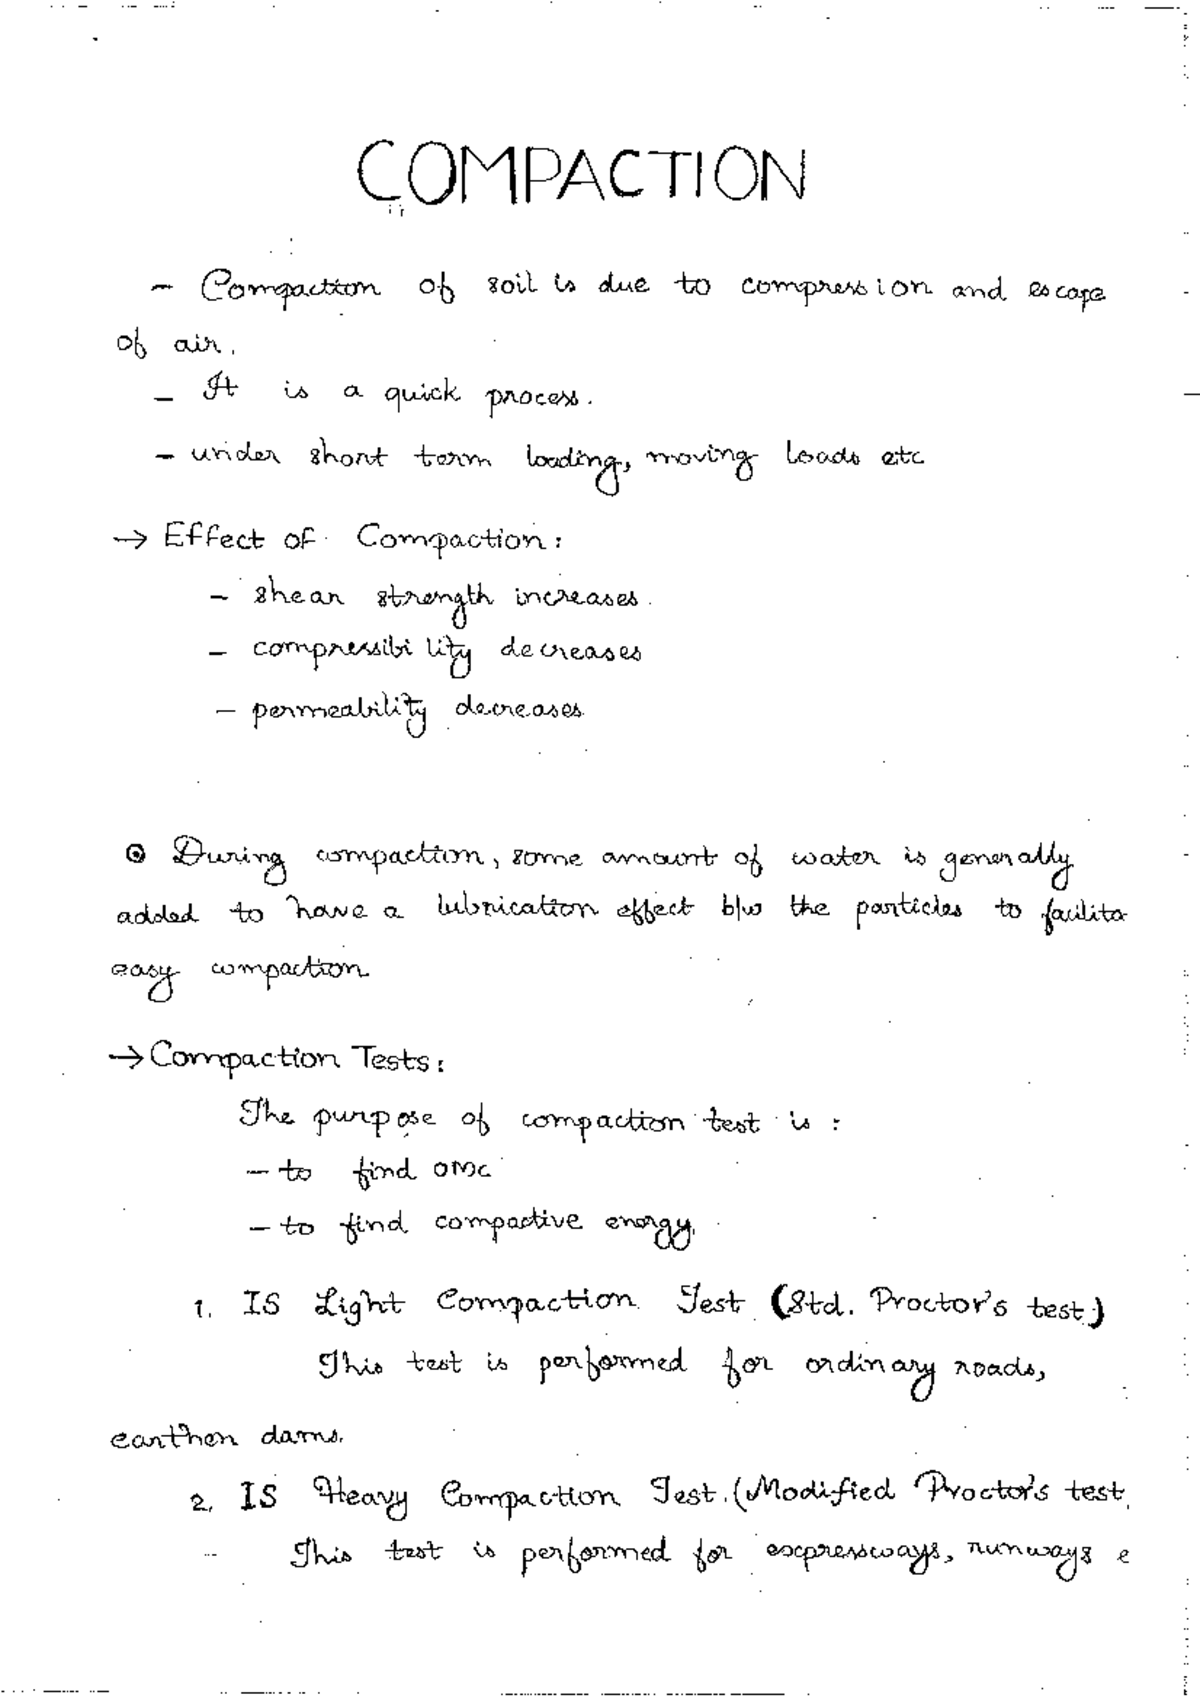 COMPACTION
- Compaction of soil is due to compression and escape
of air.
- It is a quick process.
- under short term loading, moving loads etc
→ Effect of Compaction:
- shear strength increases.
- compressibility decreases
- permeability decreases.
⊙ During compaction, some amount of water is generally
added to have a lubrication effect b/w the particles to facilita
easy compaction
→ Compaction Tests:
The purpose of compaction test is :
- to find OMC
- to find compactive energy.
1. IS Light Compaction Test (Std. Proctor's test)
This test is performed for ordinary roads,
earthen dams.
2. IS Heavy Compaction Test. (Modified Proctor's test
This test is performed for expressways, runways e